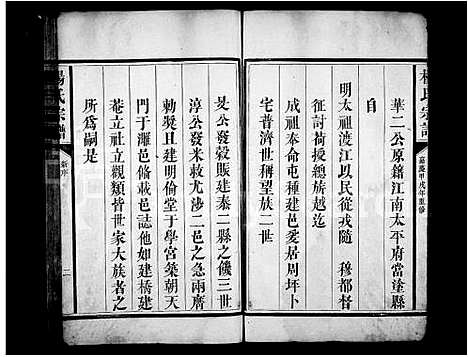 楊氏宗譜
嘉慶甲戌年重修
華二公原籍江南太平府當塗縣
自
明太祖渡江以民從戎隨 穆都督
征討荷授總旗越迄
成祖奉命屯種建邑爰居周坪卜
宅普濟世稱望族二世
旻公發穀賑建泰二縣之饑三世
淳公發米救尤涉二邑之急兩膺
勅獎且建明倫堂于學宮築朝天
門于灘邑脩載邑誌他如建橋建
菴立社立觀類皆世家大族者之
所為嗣是
楊氏宗譜
新序
二